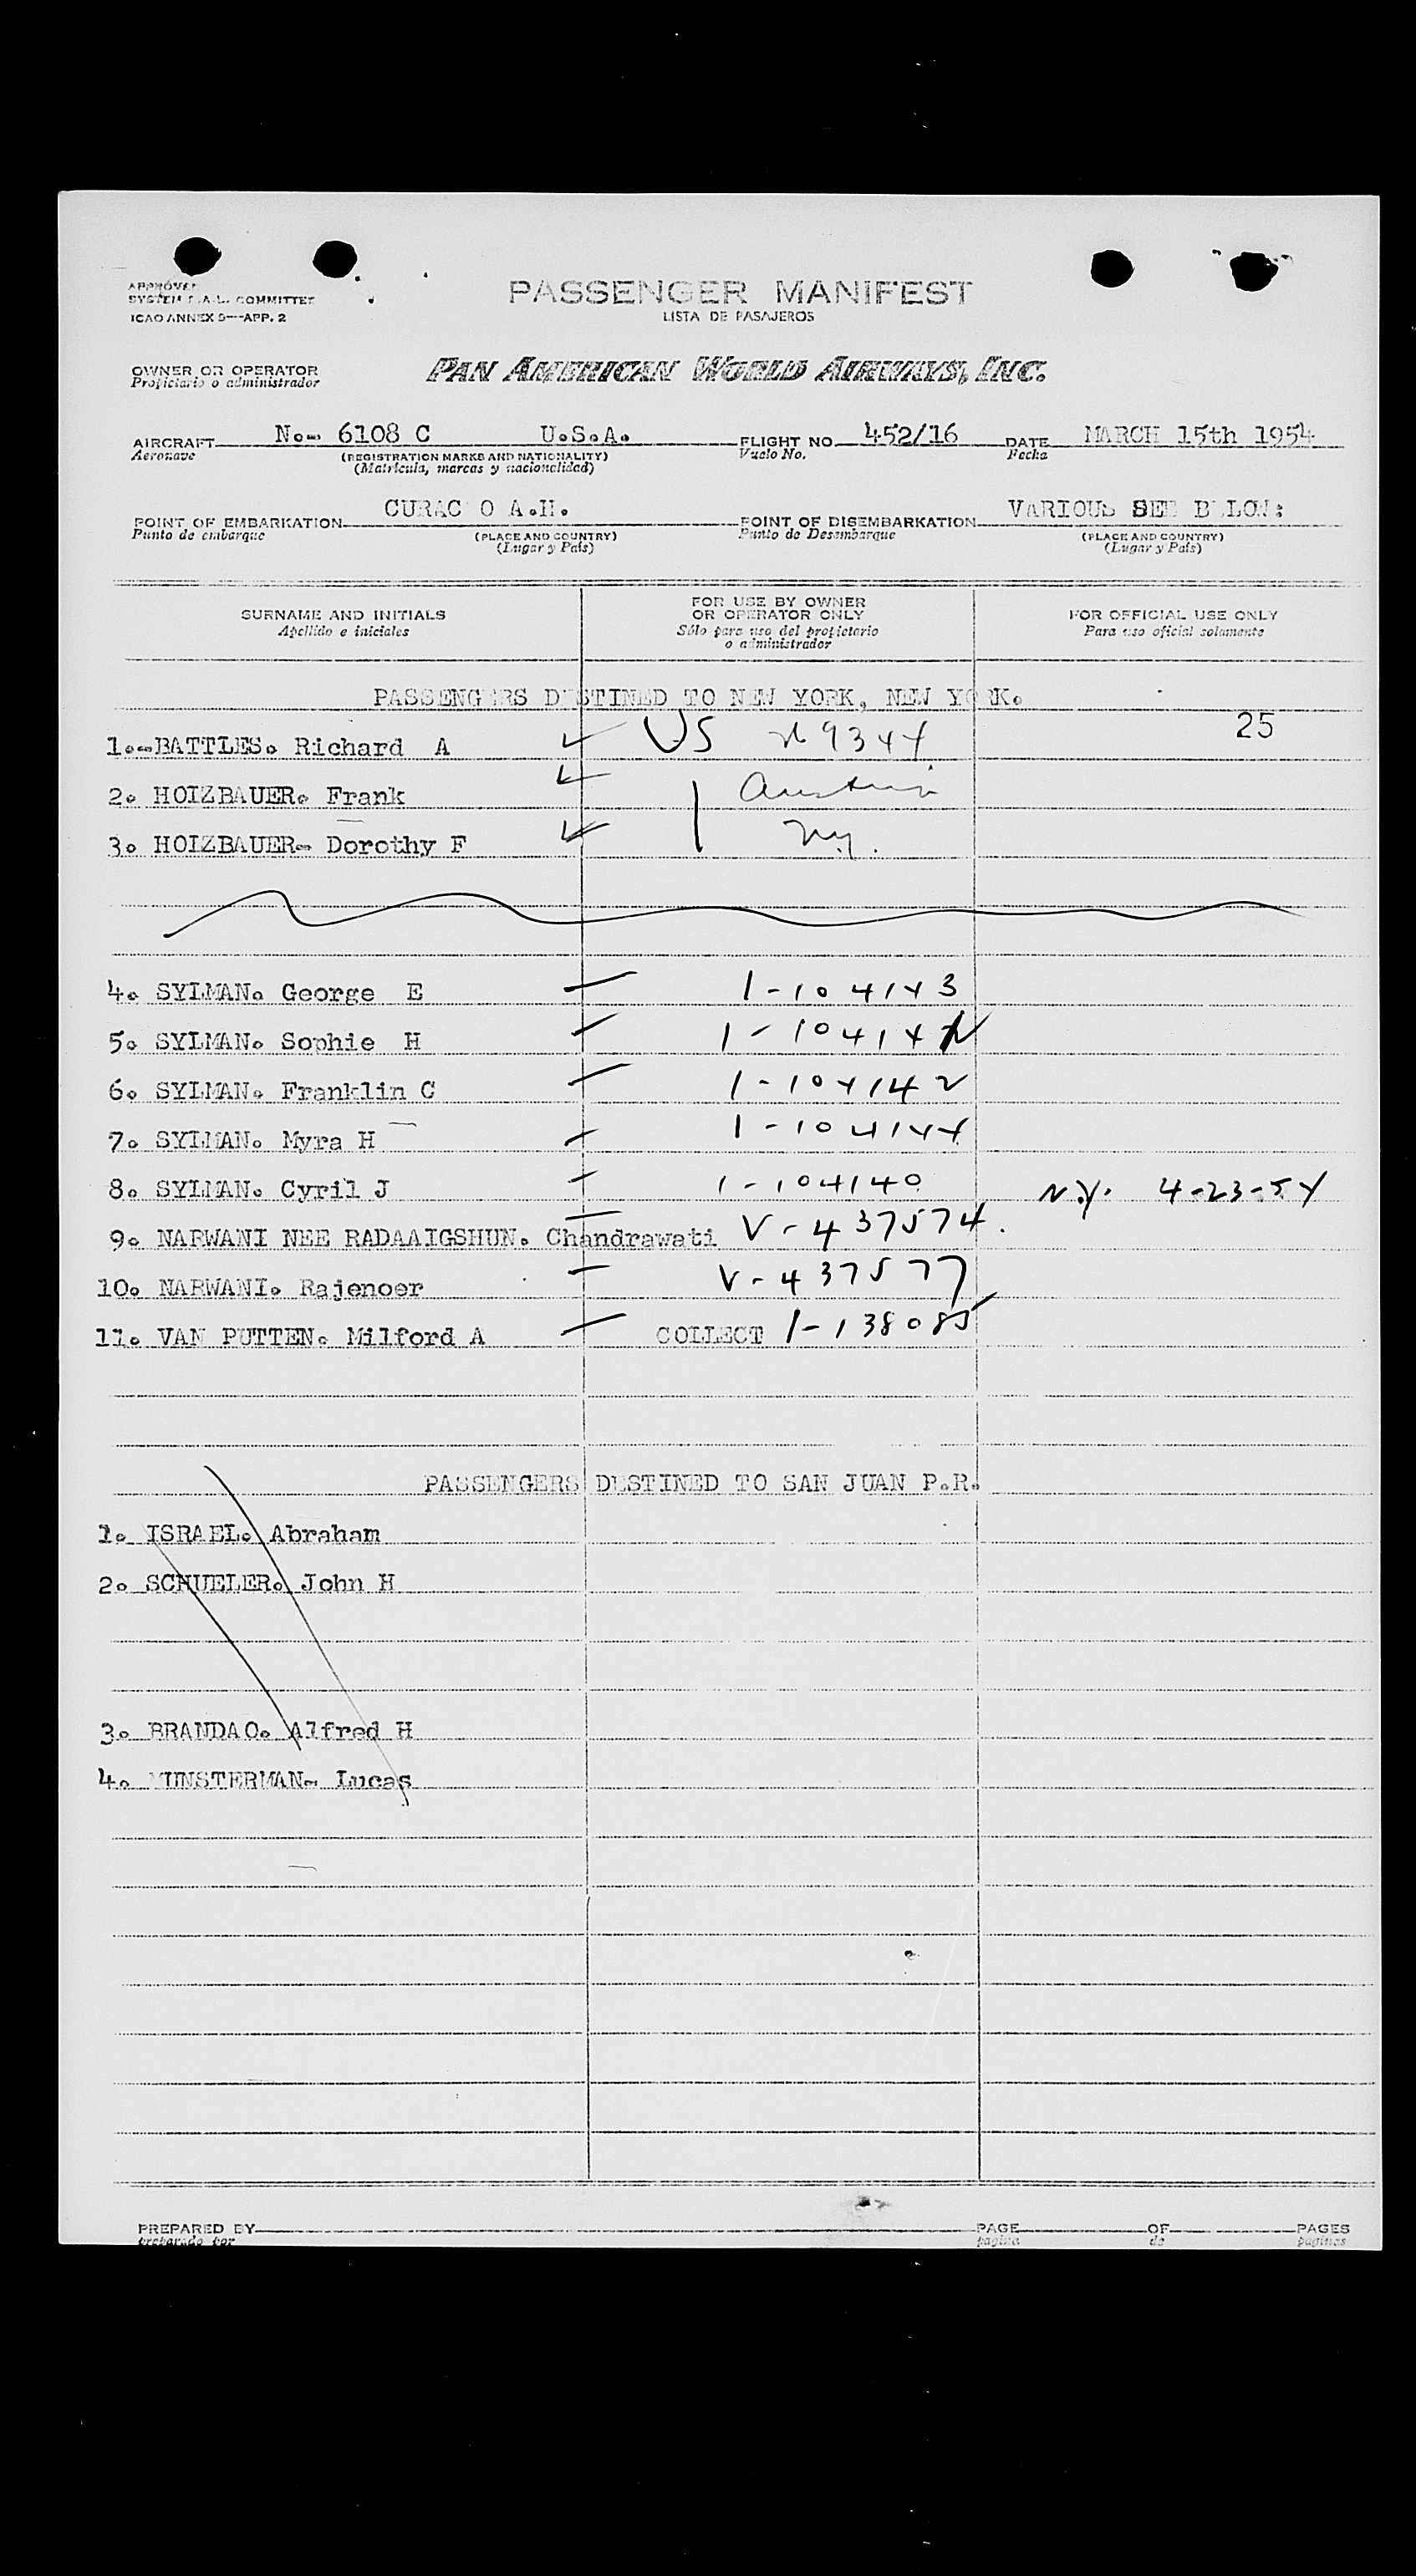 APPROVED
SYSTEM F.A.L. COMMITTEE
ICAO ANNEX 9—APP. 2
PASSENGER MANIFEST
LISTA DE PASAJEROS
OWNER OR OPERATOR
Propietario o administrador
PAN AMERICAN WORLD AIRWAYS, INC.
AIRCRAFT No.- 6108 C U.S.A. FLIGHT NO. 452/16 DATE MARCH 15th 1954
Aeronave (REGISTRATION MARKS AND NATIONALITY) Vuelo No. Fecha
(Matrícula, marcas y nacionalidad)
POINT OF EMBARKATION CURAC O POINT OF DISEMBARKATION VARIOUS SEE BELOW:
Punto de embarque (PLACE AND COUNTRY) Punto de Desembarque (PLACE AND COUNTRY)
(Lugar y País) (Lugar y País)
SURNAME AND INITIALS FOR USE BY OWNER OR OPERATOR ONLY FOR OFFICIAL USE ONLY
Apellido e iniciales Sólo para uso del propietario o administrador Para uso oficial solamente
PASSENGERS DESTINED TO NEW YORK, NEW YORK.
1.-BATTLES. Richard A US 9344 25
2. HOIZBAUER. Frank
3. HOIZBAUER- Dorothy F ny.
4. SYLMAN. George E 1-104143
5. SYLMAN. Sophie H
6. SYLMAN. Franklin C 1-104142
7. SYLMAN. Myra H 1-104144
8. SYLMAN. Cyril J 1-104140 N.Y. 4-23-54
9. NARWANI NEE RADAAIGSHUN. Chandrawati V-437574
10. NARWANI. Rajenoer V-437577
11. VAN PUTTEN. Milford A COLLECT 1-138085
PASSENGERS DESTINED TO SAN JUAN P.R.
1. ISRAEL. Abraham
2. SCHUELER. John H
3. BRANDAO. Alfred H
4. MUNSTERMAN- Lucas
PREPARED BY PAGE OF PAGES
preparado por pagina de paginas